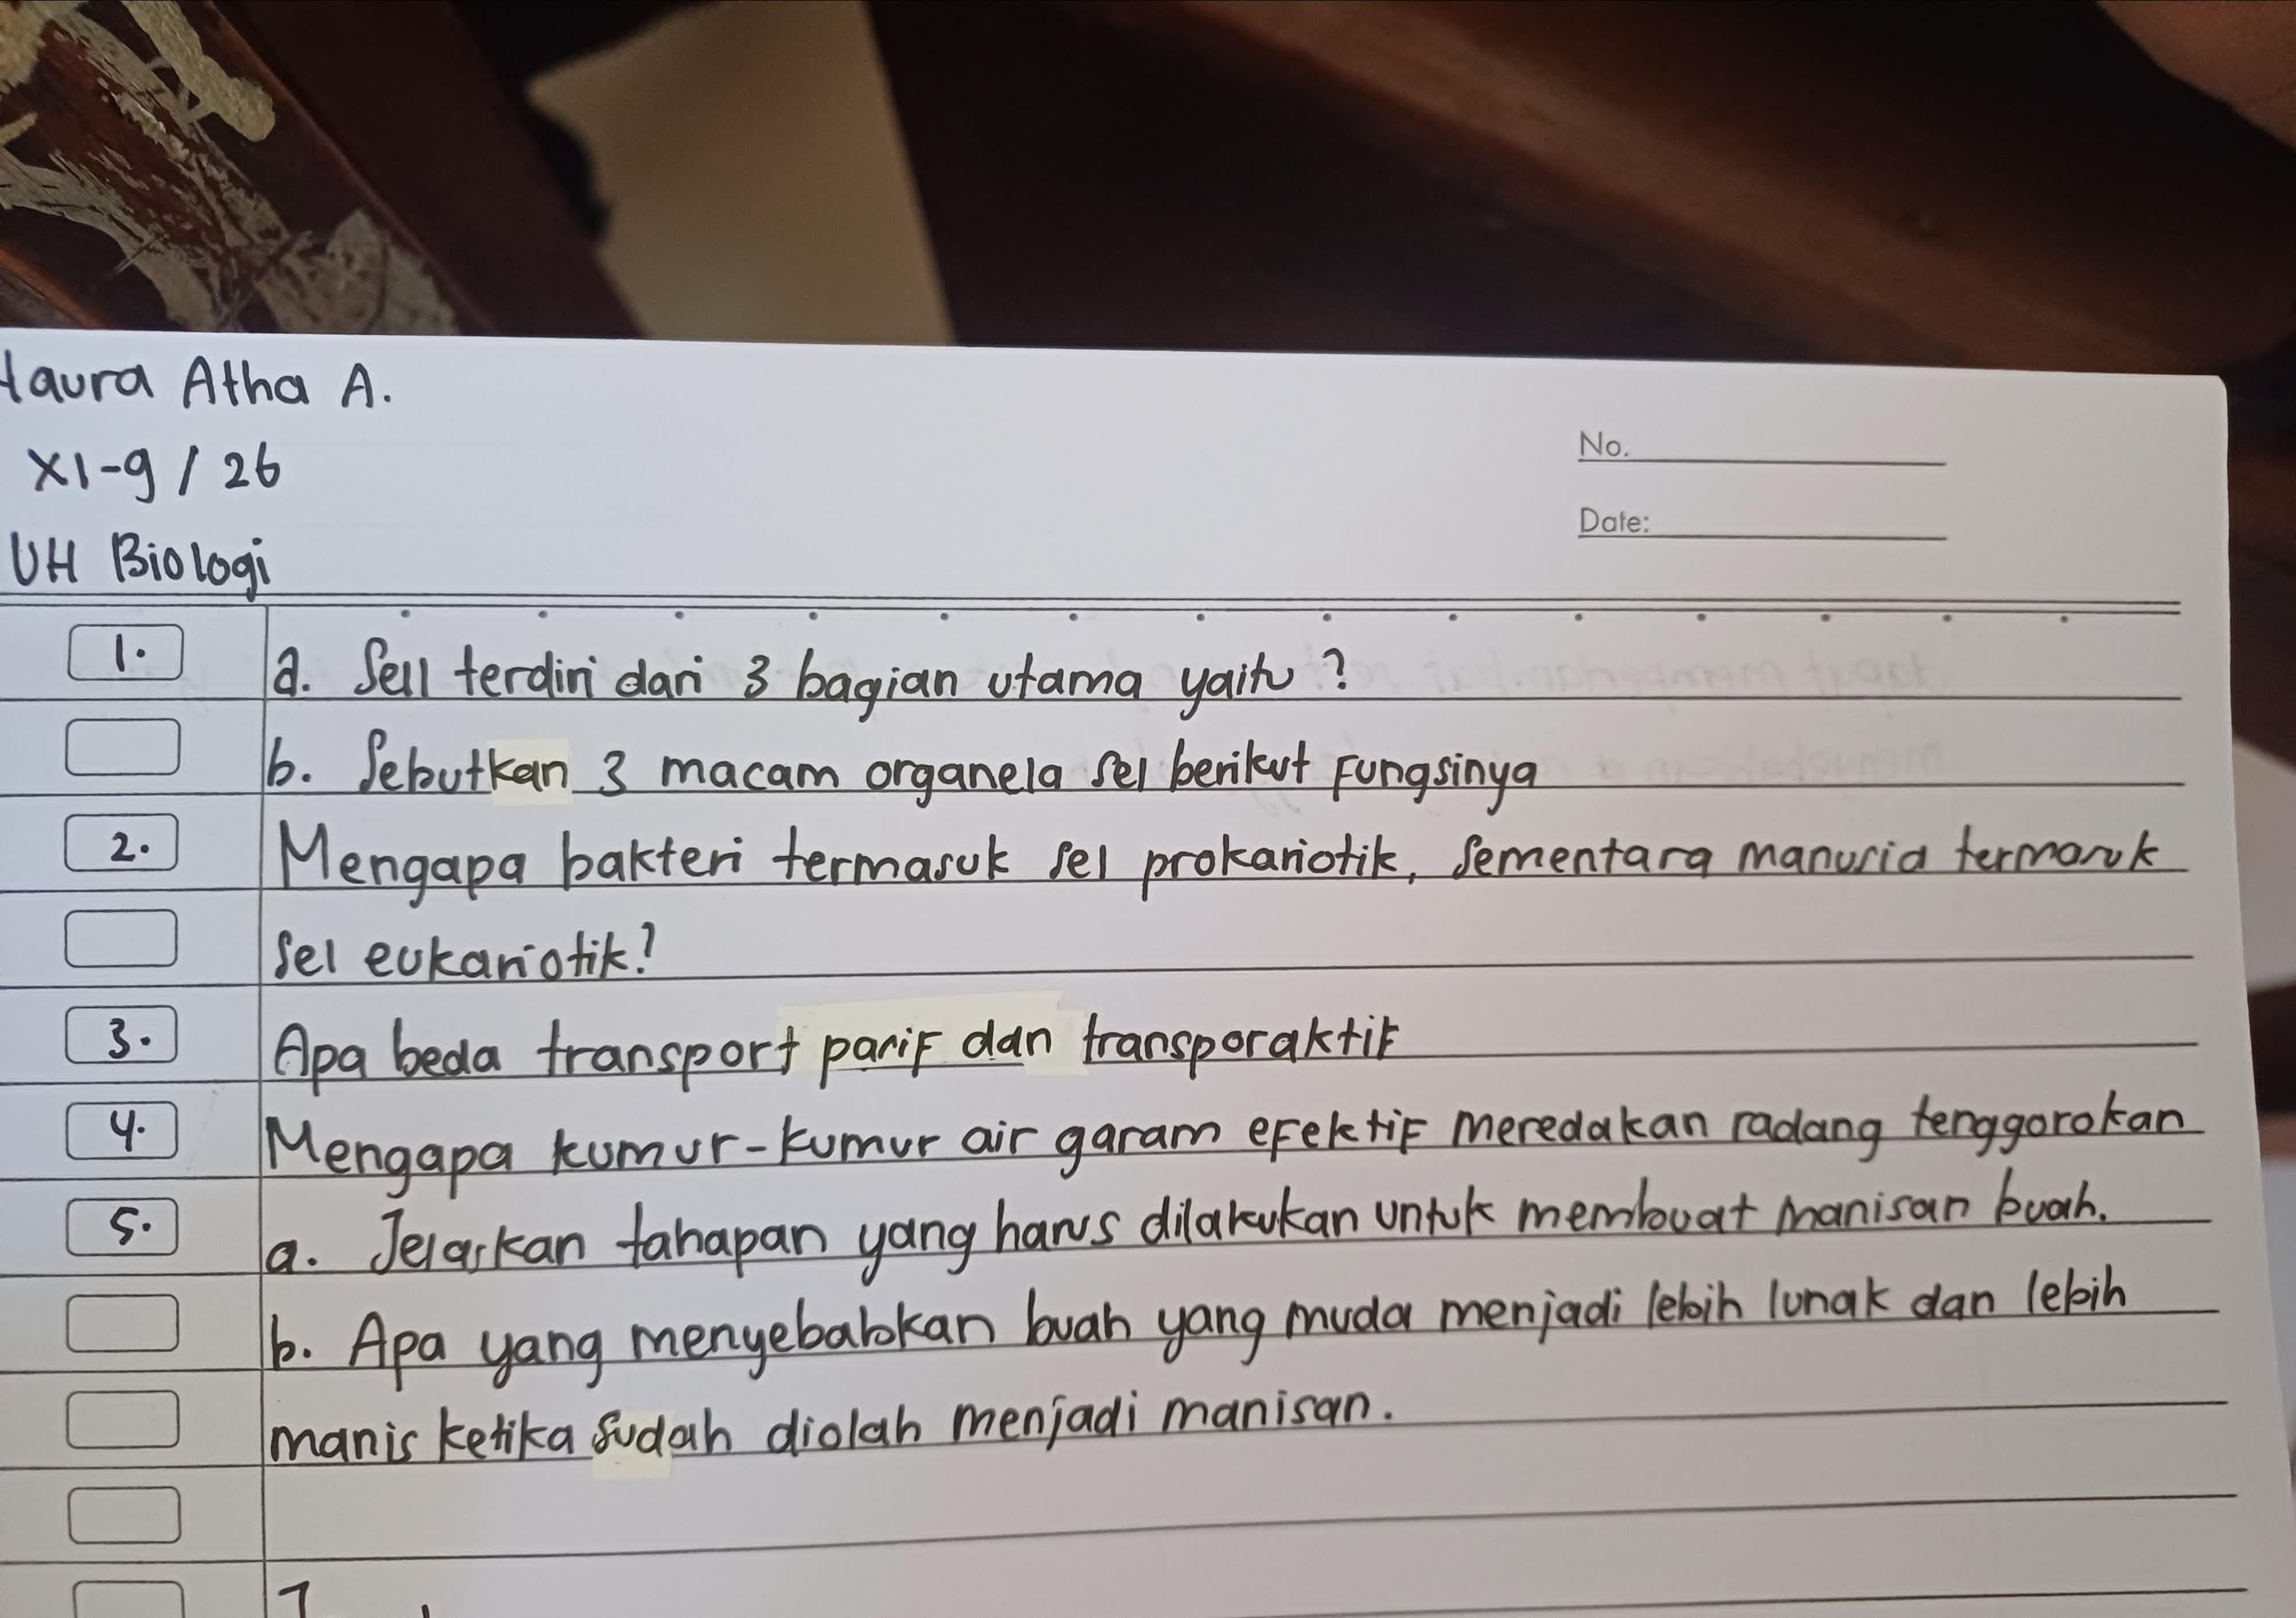 Haura Atha A.
XI-9 / 26
No.
Date:
UH Biologi
1. a. Sell terdiri dari 3 bagian utama yaitu?
b. Sebutkan 3 macam organela sel berikut Fungsinya
2. Mengapa bakteri termasuk sel prokariotik, sementara manusia termasuk
sel eukariotik?
3. Apa beda transport pasif dan transporaktif
4. Mengapa kumur-kumur air garam efektif meredakan radang tenggorokan
5. a. Jelaskan tahapan yang harus dilakukan untuk membuat manisan buah.
b. Apa yang menyebabkan buah yang muda menjadi lebih lunak dan lebih
manis ketika sudah diolah menjadi manisan.